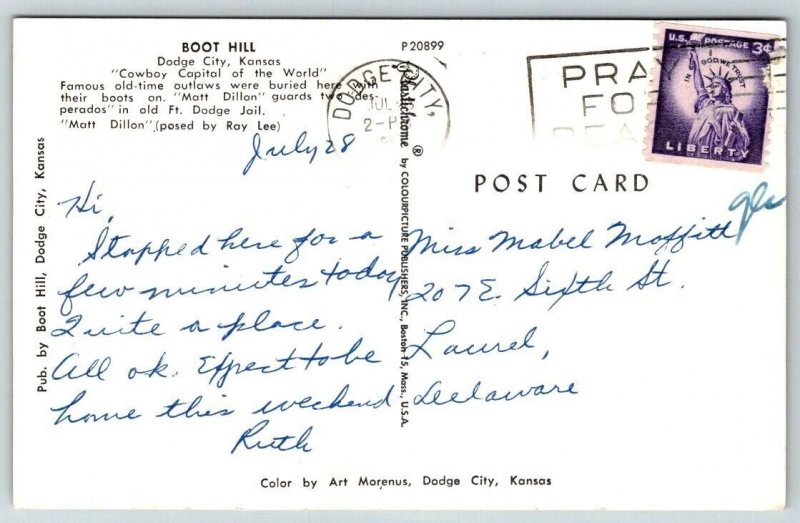 BOOT HILL
Dodge City, Kansas
"Cowboy Capital of the World"
Famous old-time outlaws were buried here with
their boots on. "Matt Dillon" guards two "des-
perados" in old Ft. Dodge Jail.
"Matt Dillon" (posed by Ray Lee)
P20899
DODGE CITY,
JUL
2-P
PRA
FO
PEA
U.S. POSTAGE 3¢
IN GOD WE TRUST
LIBERTY
POST CARD
Pub. by Boot Hill, Dodge City, Kansas
Plastichrome ® by COLOURPICTURE PUBLISHERS, INC., Boston 15, Mass., U.S.A.
July 28
Hi,
Stopped here for a
few minutes today
Quite a place.
All ok. Expect to be
home this weekend
Ruth
Miss Mabel Moffitt
207 E. Sixth St.
Laurel,
Delaware
Color by Art Morenus, Dodge City, Kansas